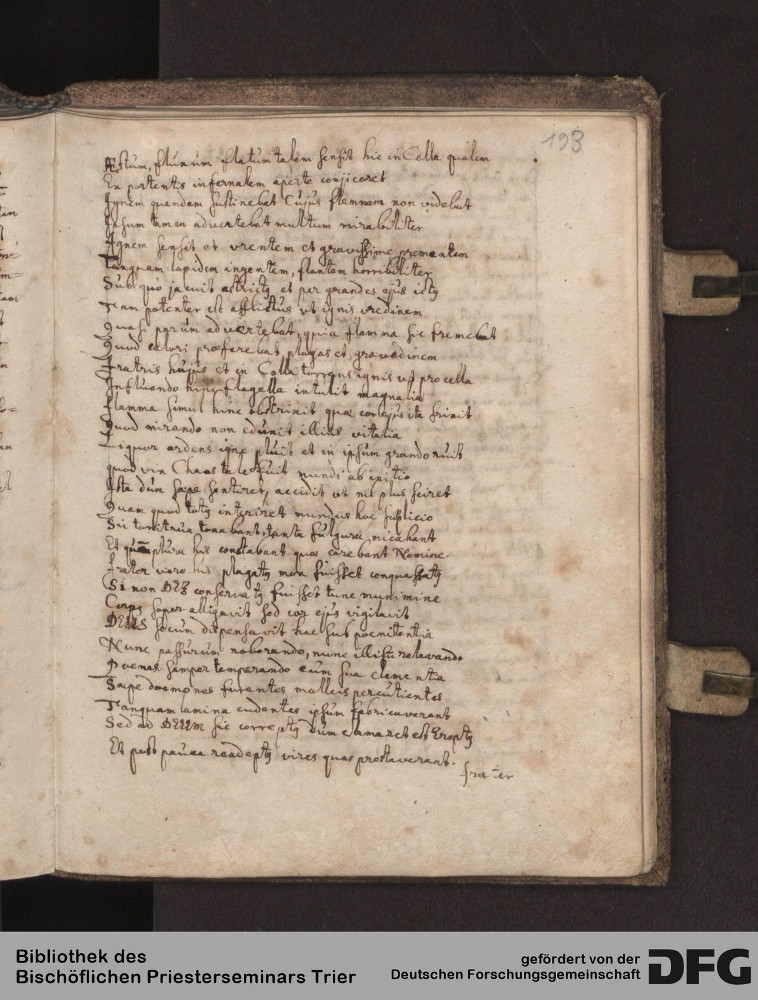 193
Æstum, flumum flatum talem sensit hic in Cella qualem
Ex portentis infernalem aperte conjiceret
Ignem quendam sustinebat Cujus flammam non videbat
Ipsum tamen advertebat multum mirabiliter
Ignem sensit et urentem et gravissime prementem
Tanquam lapidem ingentem, flantem horribiliter
Sub quo jacuit astrictus et per grandes ejus ictus
Tam potenter est afflictus ut ignis uredinem
Quasi parum advertebat, quia flamma sic fremebat
Quod calori præferebat, plagas et gravedinem
Fratris hujus et in Cella torrens ignis ut procella
Influendo hinc flagella intulit magnalia
Flamma simul hinc obstrinxit quæ corpus ita
Quod mirando non illius vitalia
Liquor ardens igne pluit et in ipsum grando ruit
quod vix Chaos tale fuit mundi ab initio
Ista dum sæpe sentiret, accidit ut nil plus sciret
Quam quod totus interiret mundus hoc supplicio
Sic tonitrua tonabant, tanta fulgura micabant
Et plura his constabant quæ carebant Nomine.
Frater vero his plagatus mox fuisset conquassatus
Si non DEI conservatus fuisset tunc munimine
Corpus sopor alligavit sed cor ejus vigilavit
DEUS secum dispensavit hac sub poenitentia
Nunc passurum roborando, nunc illisum relevando
Poenas semper temperando eum sua clementia
Sæpe dæmones furentes malleis percutientes
Tanquam lamina cudentes ipsum fabricaverant
Sed ad DEUM sic correptus dum clamaret est Ereptus
Et post pauca readeptus vires quas prostraverant.
frater
Bibliothek des
Bischöflichen Priesterseminars Trier
gefördert von der
Deutschen Forschungsgemeinschaft
DFG